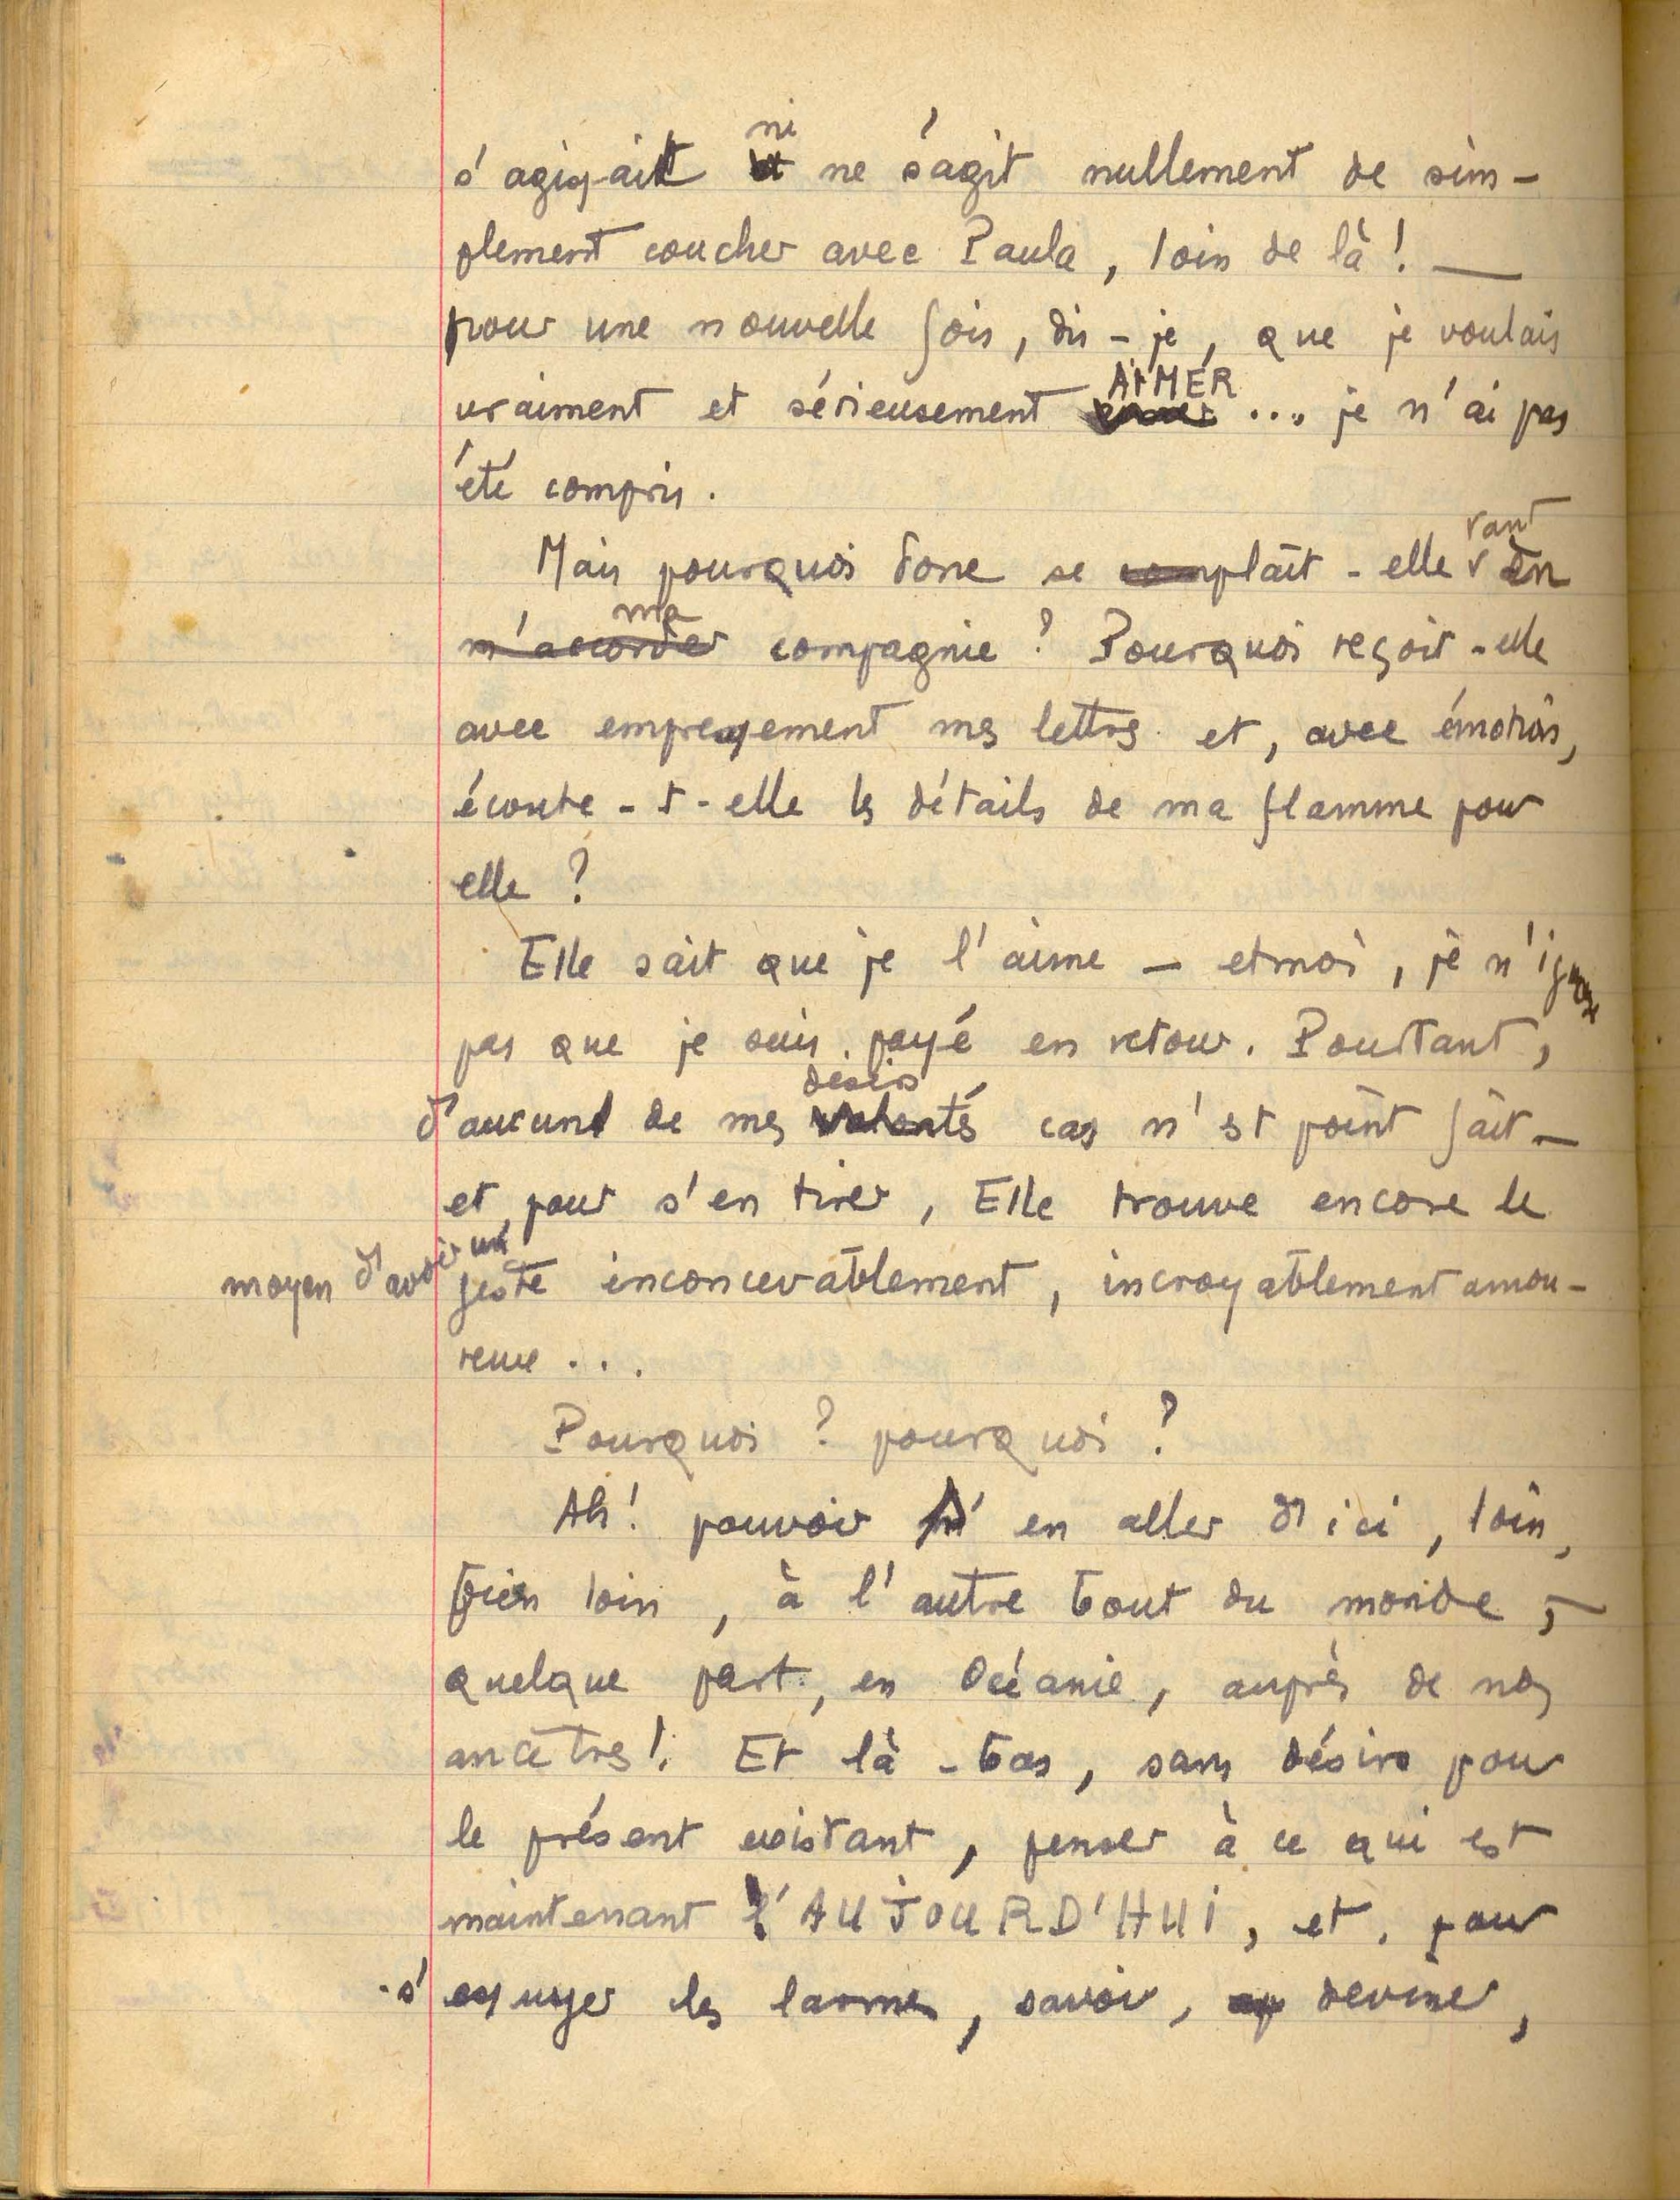 s'agissait ni ne s'agit nullement de sim-
plement coucher avec Paula, loin de là! —
pour une nouvelle fois, dis-je, que je voulais
vraiment et sérieusement AIMER ... je n'ai pas
été compris.
Mais pourquoi donc se plaît-elle tant en
ma compagnie? Pourquoi reçoit-elle
avec empressement mes lettres et, avec émotion,
écoute-t-elle les détails de ma flamme pour
elle?
Elle sait que je l'aime — et moi, je n'ignore
pas que je suis payé en retour. Pourtant,
d'aucun de mes désirs cas n'est point fait —
et pour s'en tirer, Elle trouve encore le
moyen d'avoir un geste inconcevablement, incroyablement amou-
reux...
Pourquoi? pourquoi?
Ah! pouvoir s'en aller d'ici, loin,
bien loin, à l'autre bout du monde, —
quelque part, en Océanie, auprès de nos
ancêtres! Et là-bas, sans désirs pour
le présent existant, penser à ce qui est
maintenant l'AUJOURD'HUI, et, pour
s'essuyer les larmes, savoir, deviner,